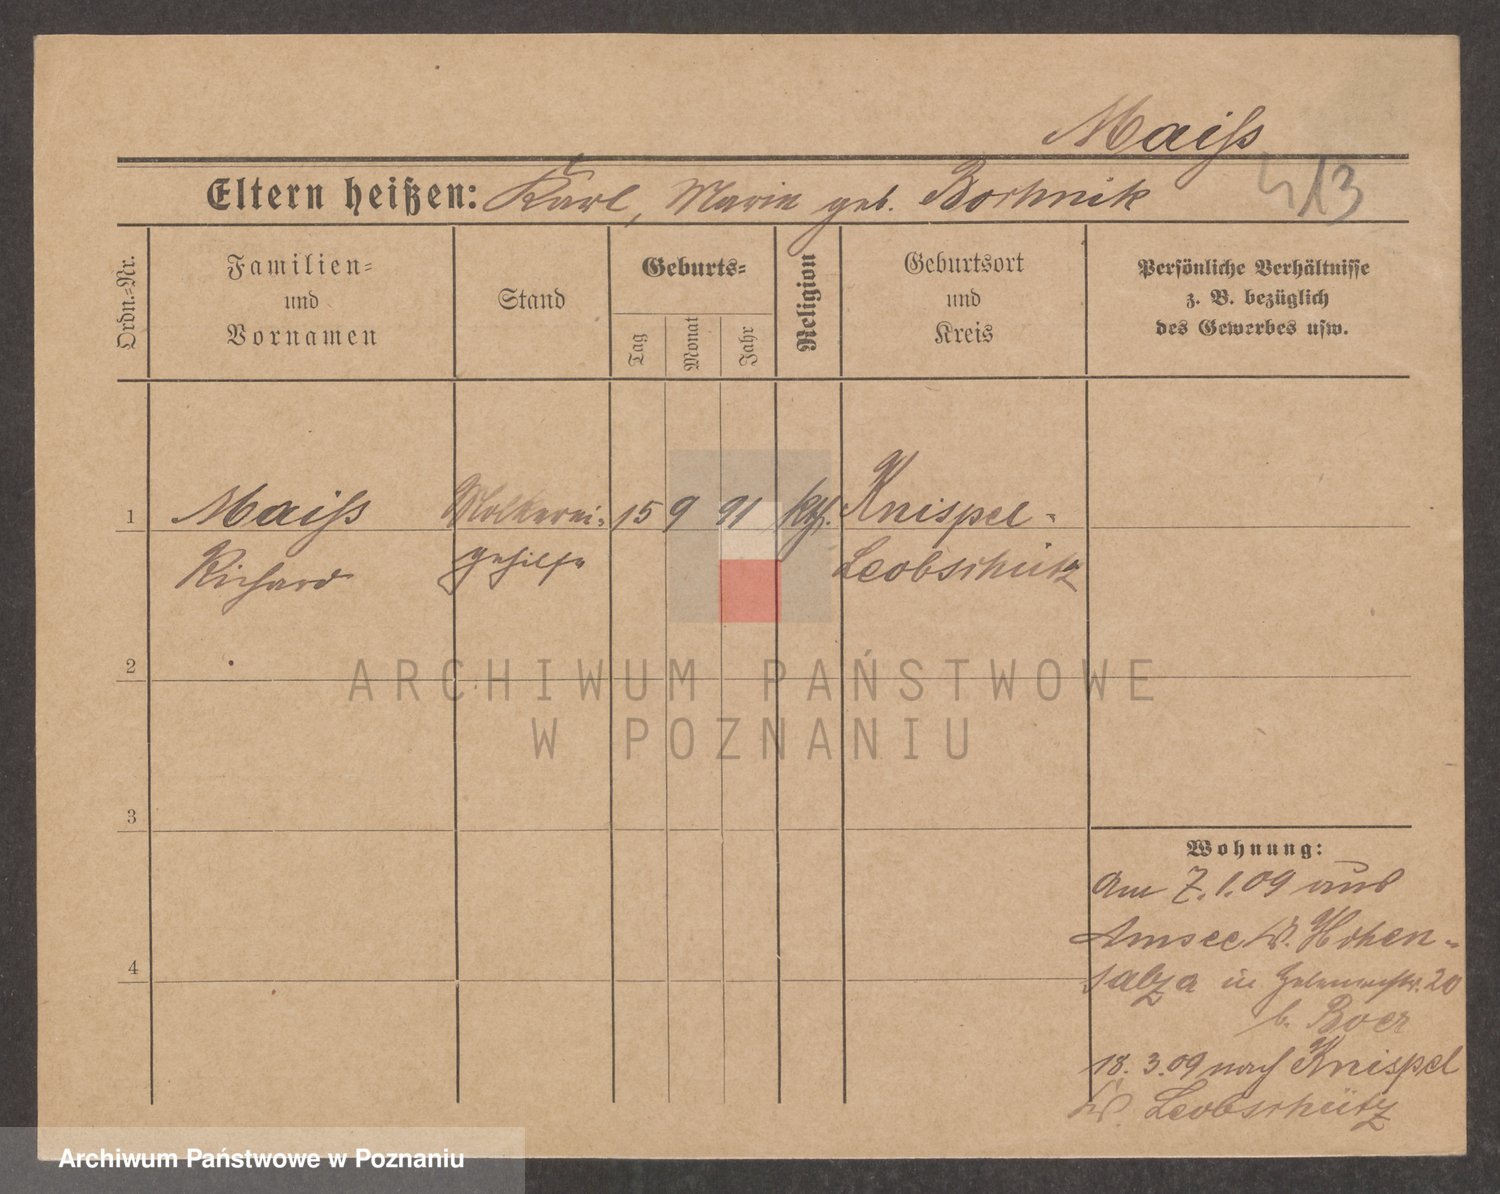 Maiß
Eltern heißen: Karl, Marie geb. Bochnik
413
Ordn.-Nr.
Familien-
und
Vornamen
Stand
Geburts-
Tag
Monat
Jahr
Religion
Geburtsort
und
Kreis
Persönliche Verhältnisse
z. B. bezüglich
des Gewerbes usw.
1 Maiß Molkerei- 15 9 91 kth. Knispel-
Richard gehilfe Leobschütz
2
ARCHIWUM PAŃSTWOWE
W POZNANIU
3
Wohnung:
Am 7.1.09 aus
Amsee Kr. Hohen-
4
salza in 20
b. Boer
18. 3.09 nach Knispel
Kr. Leobschütz
Archiwum Państwowe w Poznaniu